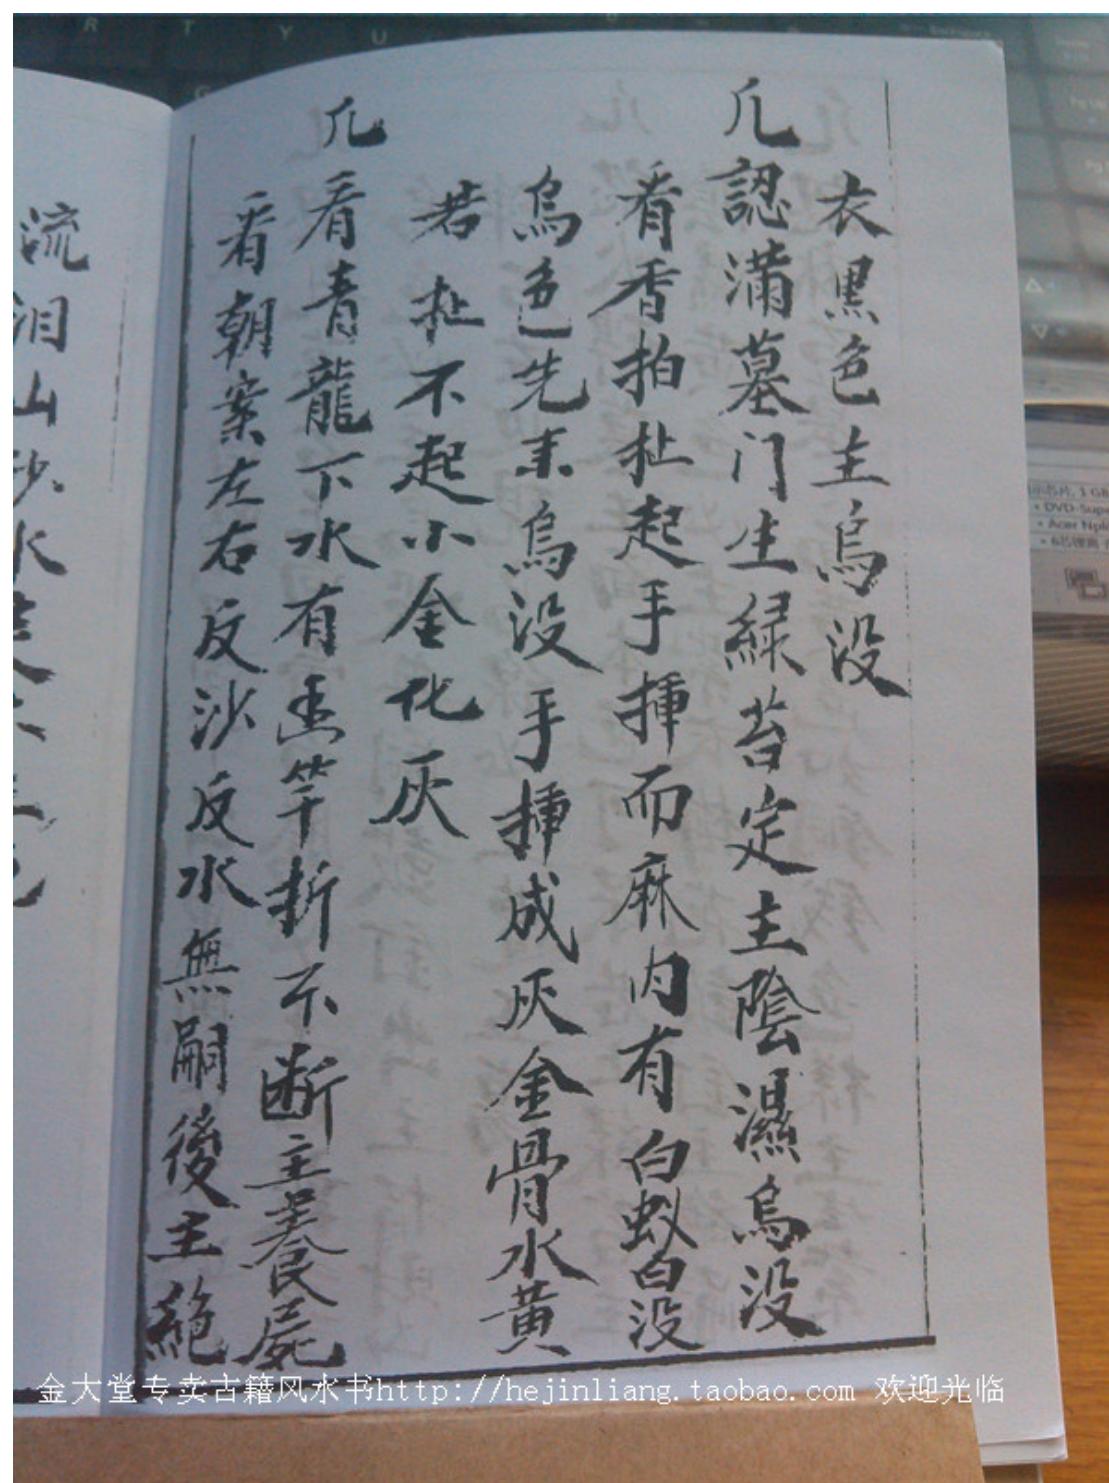 衣黑色主烏没
凢認滿墓门生緑苔定主陰濕烏没
看香拍扯起手揷而麻内有白蚁白没
烏色先未烏没手揷成灰金骨水黄
若扯不起小金化灰
凢看青龍下水有竿折不断主養屍
看朝案左右反沙反水無嗣後主絶
流泪山沙水
金大堂专卖古籍风水书http://hejinliang.taobao.com 欢迎光临